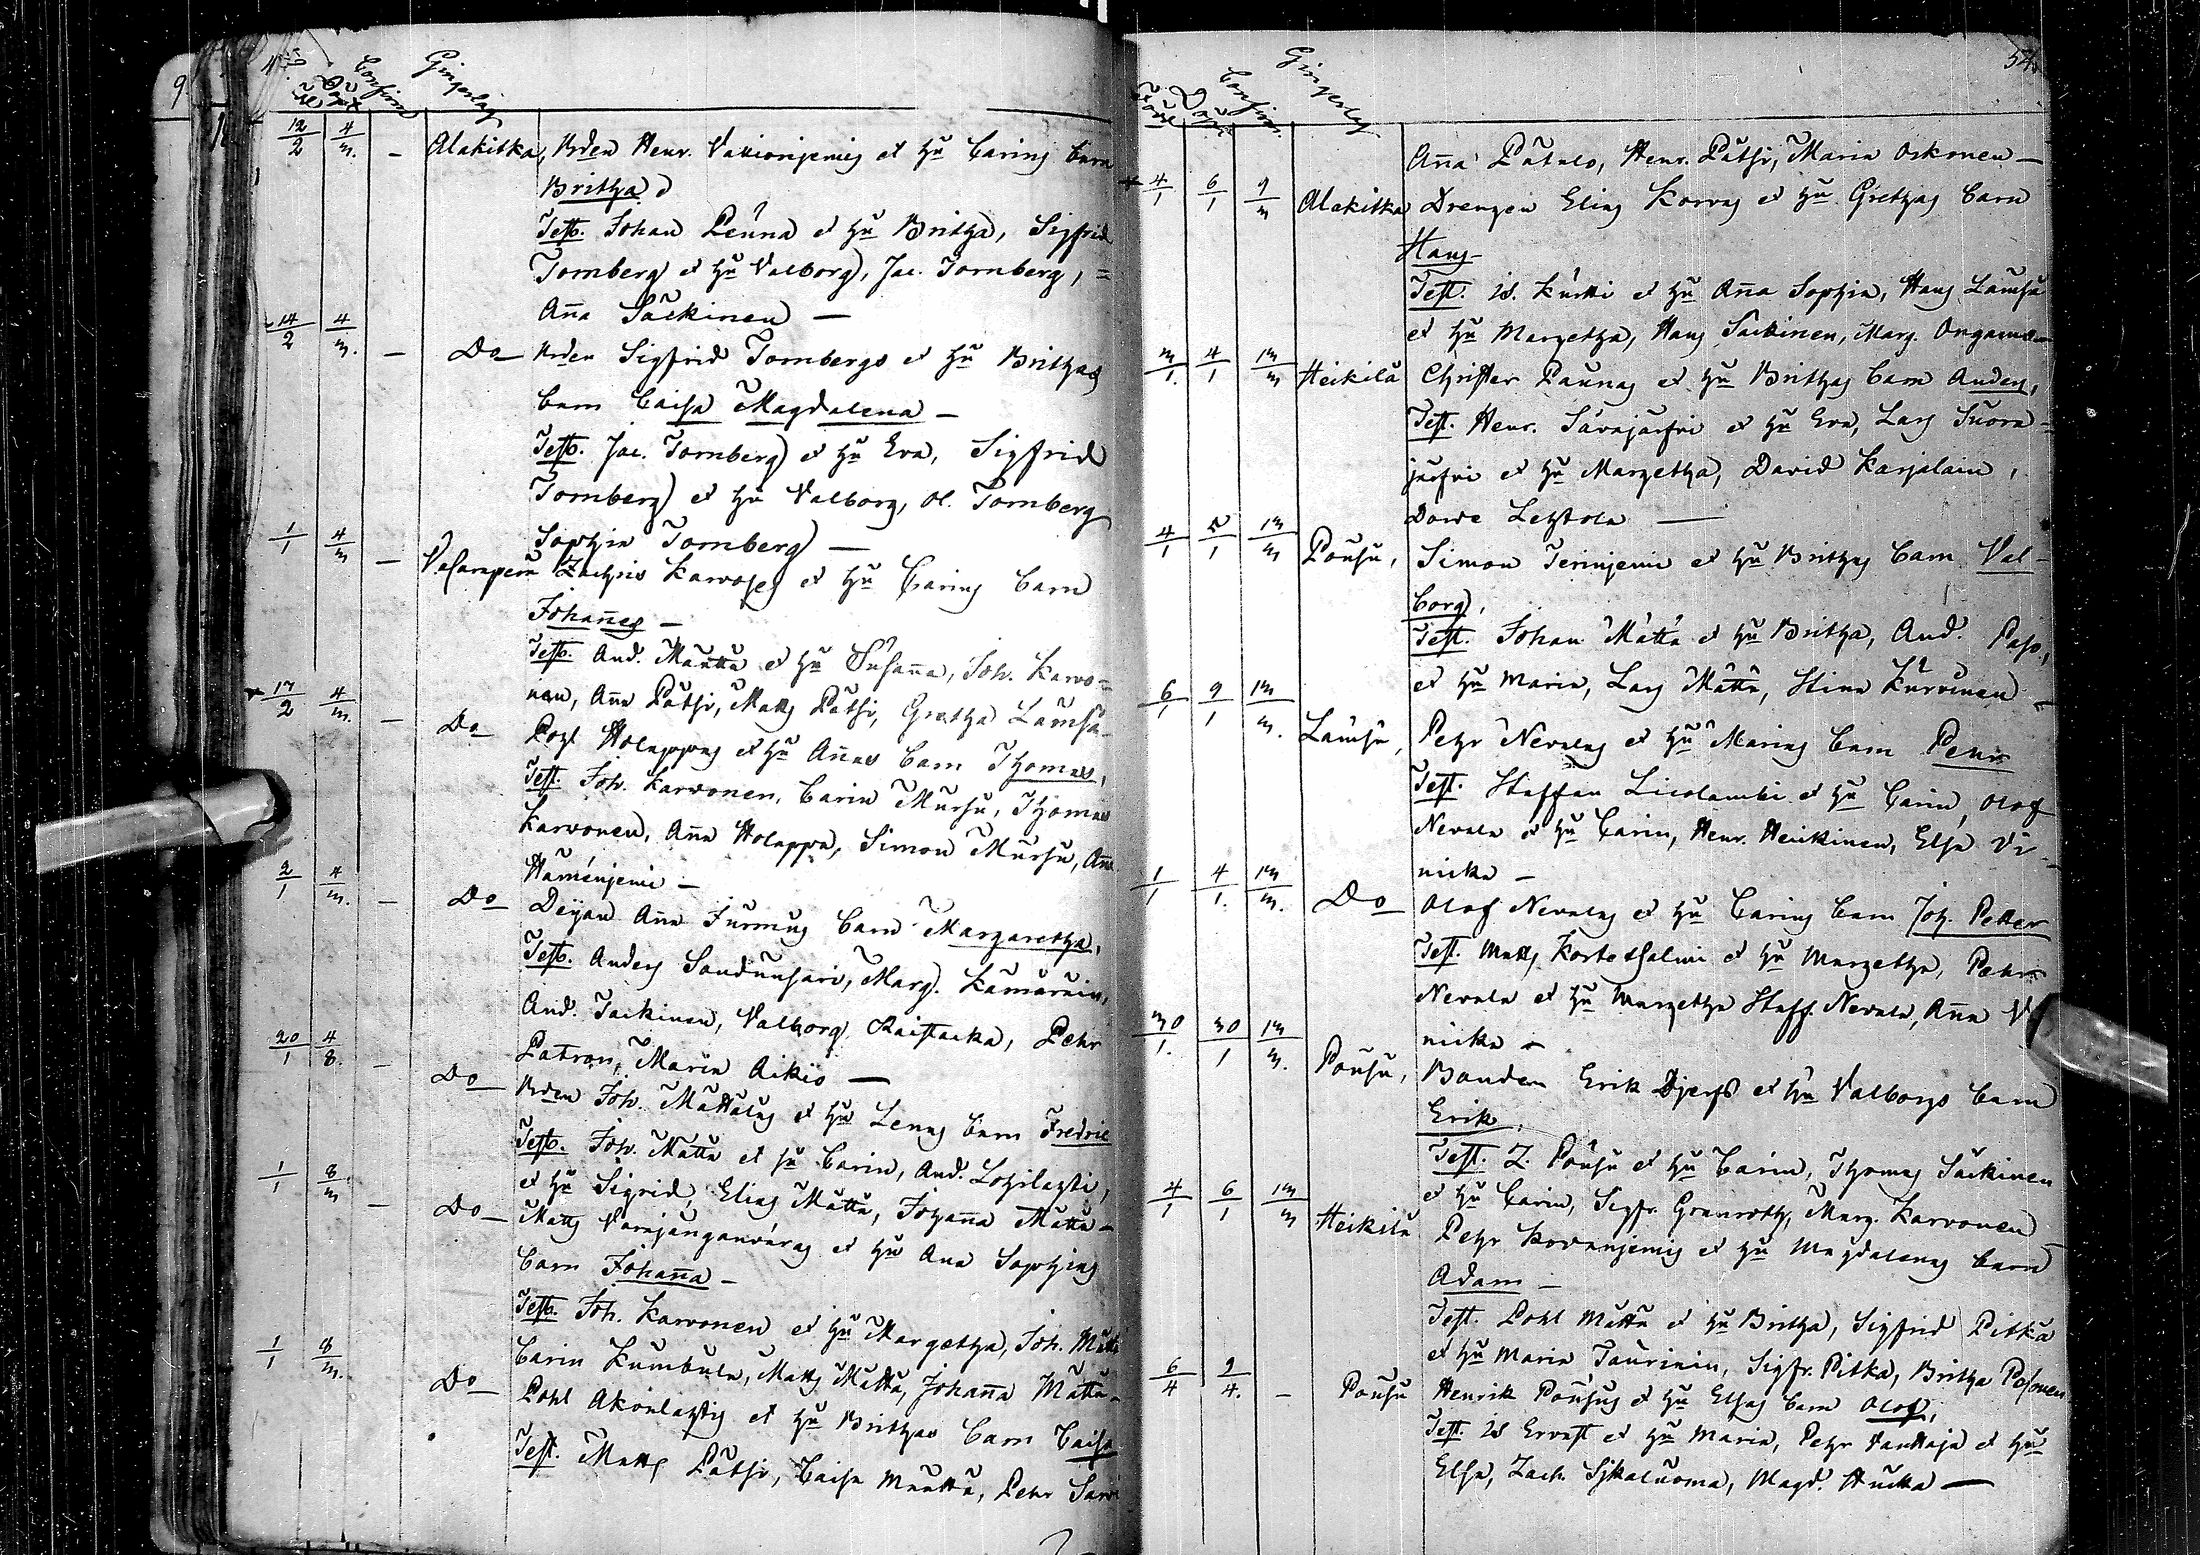 Confirm Gingerläg
12/2 4/3. – Alakitka, Brden Henr. Vanionjemis et hu Carins barn
Britha
Test. Johan Penna et hu Britha, Sigfrid
Tornberg et hu Valborg, Jac. Tornberg, =
Aña Säckinen —
14/2 4/3. – Do Brden Sigfrid Tornbergs et hu Brithas
barn Caisa Magdalena –
Test. Jac. Tornberg et hu Eva, Sigfrid
Tornberg et hu Valborg, Ol. Tornberg
Sophia Tornberg —
1/1 4/3 – Vasarapera Zachris Karvoses et hu Carins barn
Johañes –
Test. And. Määttä et hu Susaña, Joh. Karvo=
nen, Aña Pätsi, Matts Pätsi, Gretha Lämsä
17/2 4/3. – Do Pohl Holappas et hu Añas barn Thomas,
Test. Joh. Karvonen, Carin Mursu, Thomas
Karvonen, Aña Holappa, Simon Mursu, Aña
Hämenjemi –
2/1 4/3. – Do Deÿan Aña Jurmus barn Margaretha,
Test. Anders Soudunsari, Marg. Kämäräin,
And. Säckinen, Valborg Raistacka, Pehr
Patron, Maria Aikio —
20/1 4/8. – Do Brden Joh. Mättäläs et hu Lenas barn Fredric
Test. Joh. Mätta et hu Carin, And. Lohilahti,
et hu Sigrid, Elias Mätta, Johaña Mätta –
1/1 8/3 – Do Matts Varajänganvaras et hu Ana Sophias
barn Johaña –
Test. Joh. Karvonen et hu Margetha, Joh. Mätta
Carin Kumbula, Matts Mätta, Johaña Mätta –
1/1 8/3. Do Pohl Akonlahtis et hu Brithas barn Caisa
Test. Matts Pätsi, Caisa Määttä, Pehr Sarvi
54.
Född Döpt Confirm. Gingerläg
Aña Pätalo, Henr. Pätsi, Maria Oskonen —
4/1 6/1 9/3 Alakitka Drengen Elias Korvas et hu Grethas barn
Hans –
Test. Is. Kurtti et hu Aña Sophia, Hans Lämsä
et hu Margetha, Hans Säckinen, Marg. Ongamo
3/1. 4/1 13/3 Heikilä Christer Paunas et hu Brithas barn Anders,
Test. Henr. Säväjärfvi et hu Eva, Lars Suora=
järfvi et hu Margetha, David Karjalain,
Dorde Lehtola —
4/1 5/1 13/3 Pousu, Simon Terinjemi et hu Brithas barn Val–
borg,
Test. Johan Mättä et hu Britha, And. Paso,
et hu Maria, Lars Mättä, Stina Kurvinen –
6/1 9/1 13/3. Lämsä, Pehr Nevalas et hu Marias barn Pehr
Test. Staffan Livolambi et hu Carin, Olof
Nevala et hu Carin, Henr. Heikinen, Elsa Vi–
nicka –
1/1 4/1. 13/3. Do Olof Nevalas et hu Carins barn Joh. Petter
Test. Matts Kortesalmi et hu Margetha, Pehr
Nevala et hu Margetha Staff. Nevala, Aña V
nicka –
30/1. 30/1 13/3. Pousu, Bonden Erik Djerfs et hu Valborgs barn
Erik,
Test. Z. Pousu et hu Carin, Thomas Säckinen
et hu Carin, Sigfr. Granroth, Marg. Karvonen
4/1 6/1 13/3 Heikilä Pehr Kovanjemis et hu Magdalenas barn
Adam –
Test. Pohl Mätta et hu Britha, Sigfrid Pitkä
et hu Maria, Taurinin, Sigfr. Pitkä, Britha Posonen
6/4 9/4. – Pousu Henrik Pousus et hu Elsas barn Olof,
Test. Is Ervast et hu Maria, Pehr Vanttaja et hu
Elsa, Zach. Sjkaluoma, Magd. Hucka —